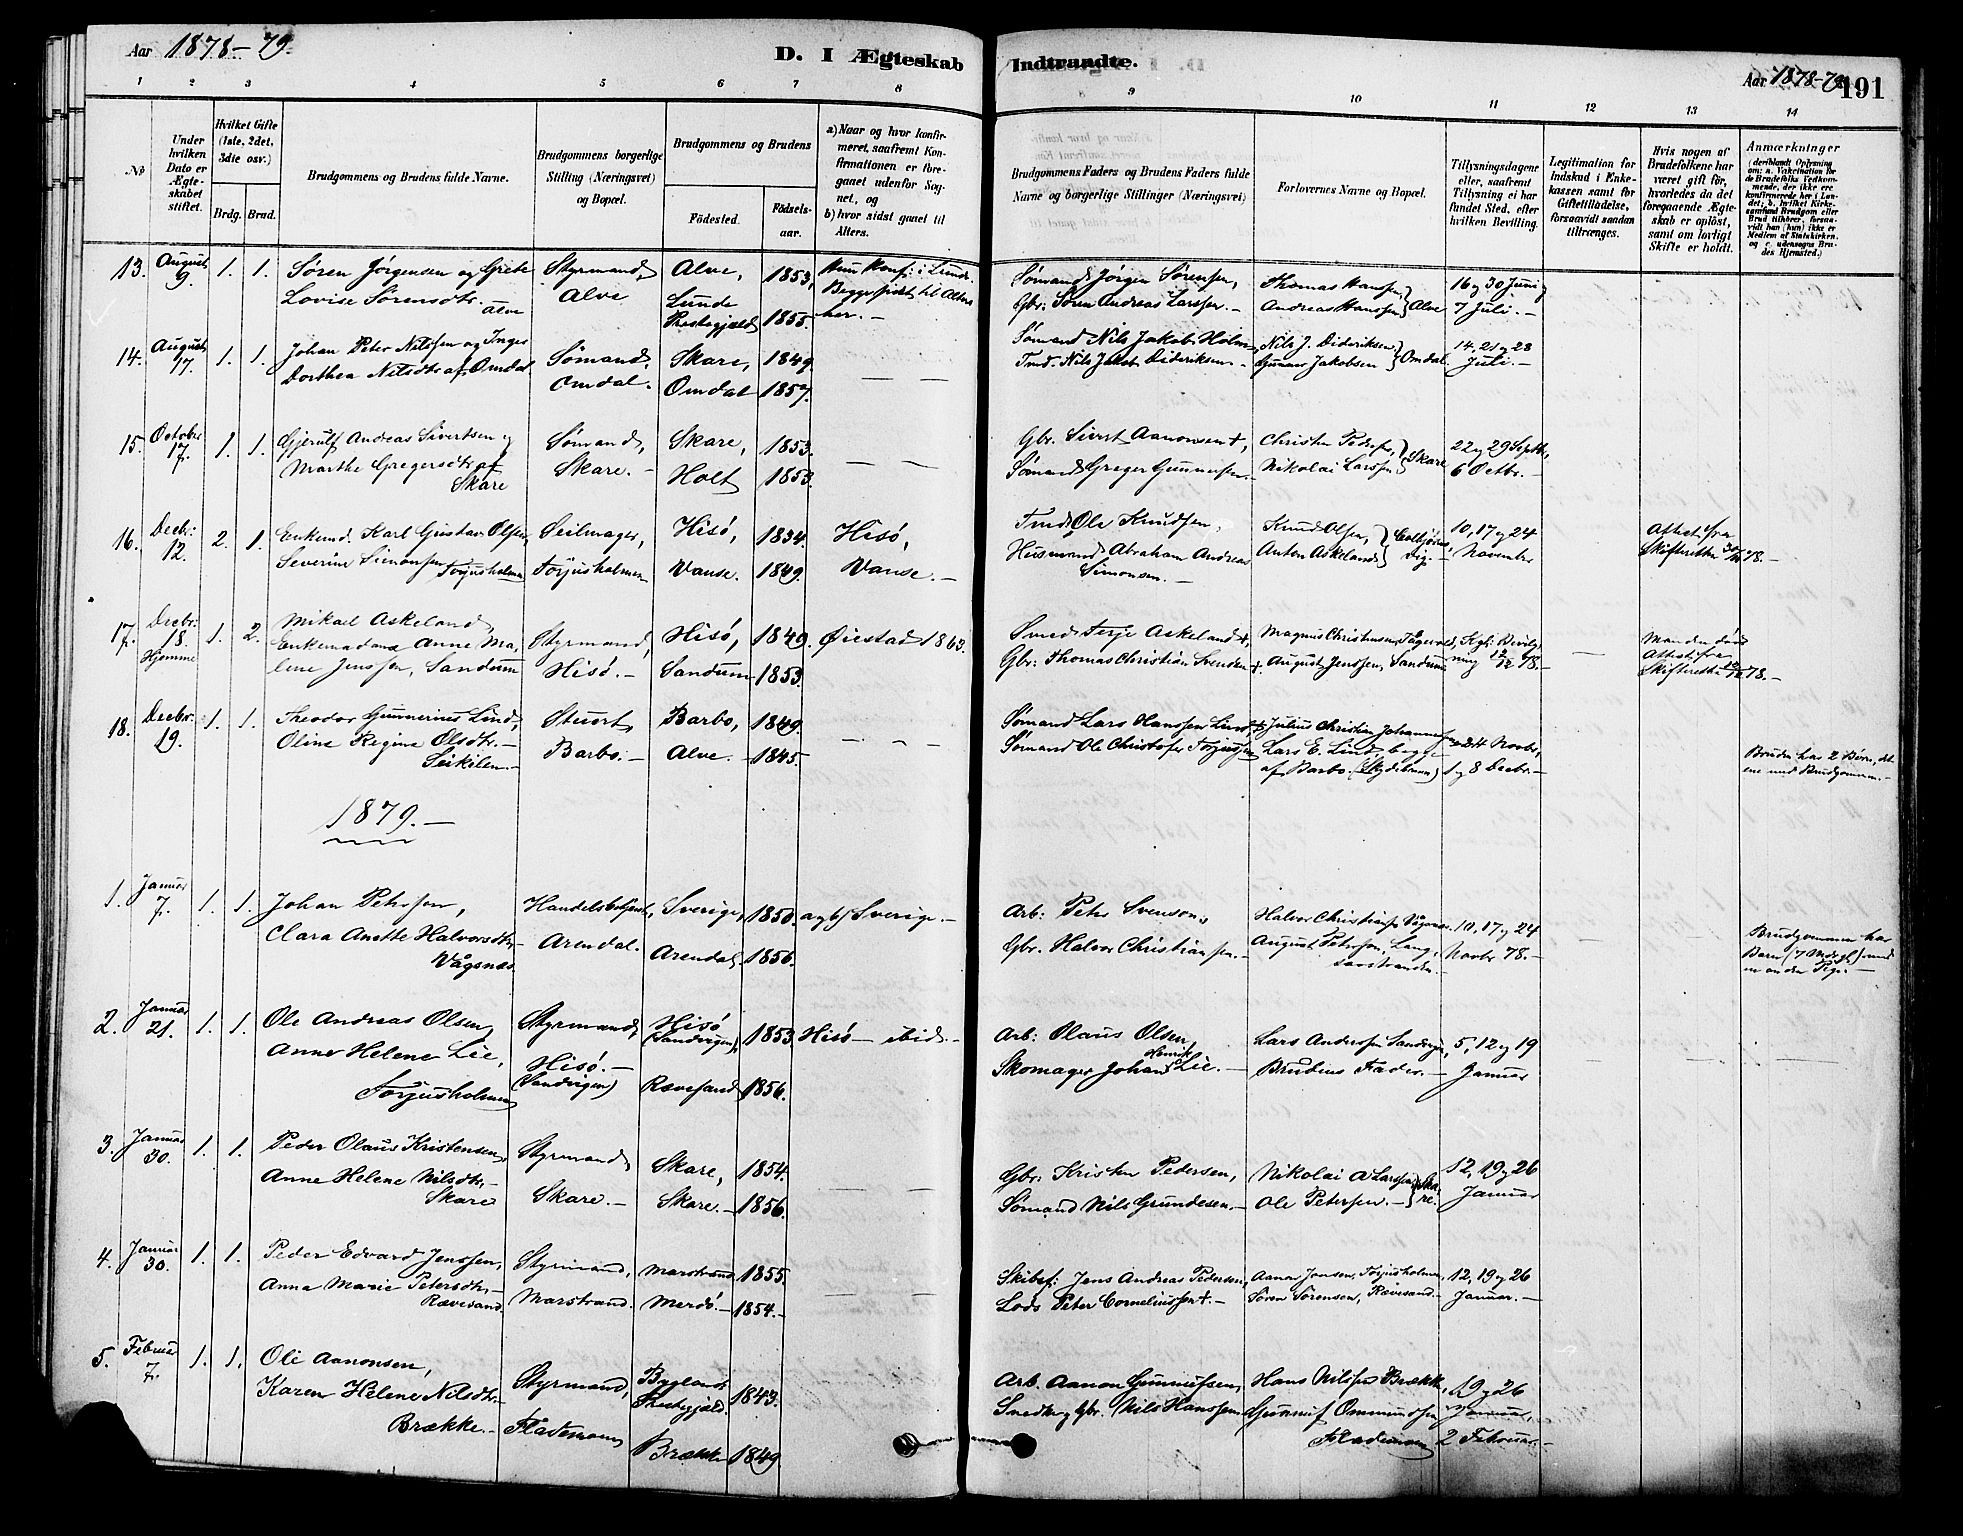 Aar 1878-79.
D. I Ægteskab Indtraadte.
Aar 1878-79
191
1 2 3 4 5 6 7 8 9 10 11 12 13 14
No
Under hvilken Dato er Ægteskabet stiftet.
Hvilket Gifte (1ste, 2det, 3die osv.)
Brdg. Brud.
Brudgommens og Brudens fulde Navne.
Brudgommens borgerlige Stilling (Næringsvei) og Bopæl.
Brudgommens og Brudens
Fødested.
Fødselsaar.
a) Naar og hvor konfirmeret, saafremt Konfirmationen er foregaaet udenfor Sognet, og
b) hvor sidst gaaet til Alters.
Brudgommens Faders og Brudens Faders fulde Navne og borgerlige Stillinger (Næringsvei)
Forlovernes Navne og Bopæl.
Tillysningsdagene eller, saafremt Tillysning ei har fundet Sted, efter hvilken Bevilling.
Legitimation for Indskud i Enkekassen samt for Giftetilladelse, forsaavidt saadan tiltrænges.
Hvis nogen af Brudefolkene har været gift før, hvorledes da det foregaaende Ægteskab er opløst, samt om lovligt Skifte er holdt.
Anmærkninger
13. August 9. 1. 1. Søren Jørgensen og Grete
Lovise Sørensdtr. Alve
Styrmand, Alve
Alve, 1853,
Lunde Prestegjeld 1855.
Hun Konf: i Lunde.
Begge sidst til Alters her.-
Sømand Jørgen Sørensen,
Gbr. Søren Andreas Larssen.-
Thomas Hanssen,
Andreas Hanssen } Alve
16 og 30 Juni og
7 Juli.-
14. August 17. 1. 1. Johan Peter Nilssen og Inger
Dorthea Nilsdtr. af Omdal
Sømand, Omdal.
Skare, 1849.
Omdal 1857.
Sømand Nils Jakob Holm,
Tmd. Nils Jakob Dideriksen.-
Nils J. Dideriksen
Gunnar Jakobsen } Omdal
14, 21 og 28
Juli.-
15. October 17. 1. 1. Gjerulf Andreas Sivertsen og
Marthe Gregersdtr. af Skare
Sømand, Skare.-
Skare, 1853.
Holt 1853.
Gbr. Sivert Aanonsen +,
Sømand Greger Gunnersen.-
Christen Pedersen,
Nikolai Larssen } Skare
22 og 29 Septbr,
6 Octbr.-
16. Decbr: 12. 2. 1. Enkemd. Karl Gustav Olsen,
Severine Simonsen Torjusholmen
Seilmager, Torjusholmen
Hisø, 1834.
Vanse. 1849.
Hisø,
Vanse.-
Tmd. Ole Knudsen,
Husmand Abraham Andreas
Simonsen.-
Knud Olsen,
Anton Askeland
10, 17 og 24
November
Attest fra
Skifteretten 78.-
17. Decbr: 18. Hjemme 1. 2. Mikael Askeland,
Enkemadame Anne Malene Jenssen, Sandum
Styrmand, Hisø.-
Hisø, 1849.
Sandum 1853.
Øiestad 1863.
Smed Terje Askeland +,
Gbr. Thomas Christian Svendsen +.
Magnus Christensen,
August Jenssen, Sandum
Kgl: Bevilgning 12/12 78.-
Manden død
Attest fra
Skifteretten 78.-
18. Decbr: 19. 1. 1. Theodor Gunnerius Lind,
Oline Regine Olsdtr.-
Seikilen.-
Stuert, Barbo.-
Barbo, 1849.
Alve.- 1845.
Sømand Lars Hanssen Lind,
Sømand Ole Christofer Torjussen
Julius Christian Johannessen
Lars E. Lind, begge
af Barbo.
24 Novbr,
1 og 8 Decbr.-
Bruden har 2 Børn, det
ene med Brudgommen.-
1879.-
1. Januar 7. 1. 1. Johan Petersen,
Clara Anette Halvorsdtr.
Vågsnæs
Handelsbetjent, Arendal.
Sverige, 1850.
Arendal, 1856.
a og b / Sverige.-
Arb: Peter Svenson,
Gbr. Halvor Christiansen.-
Halvor Christiansen Vågsnæs.
August Petersen, Langsævstranden.-
10, 17 og 24
Novbr 78.-
Brudgommen har
Barn (7 Mdr gl.) med
en anden Pige.-
2. Januar 21. 1. 1. Ole Andreas Olsen,
Anne Helene Lie,
Torjusholmen
Styrmand, Hisø.- (Sandvigen)
Hisø (Sandvigen), 1853.
Rævesand 1856.
Hisø - ibid.-
Arb: Olaus Olsen,
Skomager Johan Henrik Lie.-
Lars Andersen Sandvigen,
Brudens Fader.-
5, 12 og 19
Januar
3. Januar 30. 1. 1. Peder Olaus Kristensen,
Anne Helene Nilsdtr.-
Skare
Styrmand, Skare.-
Skare, 1854.
Skare.- 1856.
Gbr: Kristen Pedersen,
Sømand Nils Grundesen.-
Nikolai A Larssen
Ole Petersen.- } Skare.
12, 19 og 26
Januar
4. Januar 30. 1. 1. Peder Edvard Jenssen,
Anna Marie Petersdtr.-
Rævesand
Styrmand, Marstrand.
Marstrand 1855.
Merdø.- 1854.-
Skibsf: Jens Andreas Pedersen,
Lods Peter Corneliussen +.-
Aanon Jensen, Torjusholmen,
Søren Sørensen, Rævesand.-
12, 19 og 26
Januar.-
5. Februar 7. 1. 1. Ole Aanonsen,
Karen Helene Nilsdtr.-
Brække.-
Styrmand, Flademoen
Bygland Prestegjæld. 1843.
Brække 1849.
Arb. Aanon Gunnufsen,
Snedker og Gbr. Nils Hanssen
Hans Nilsen Brække,
Gunnuf Ommundsen
Flademoen
19 og 26
Januar,
2 Februar.-